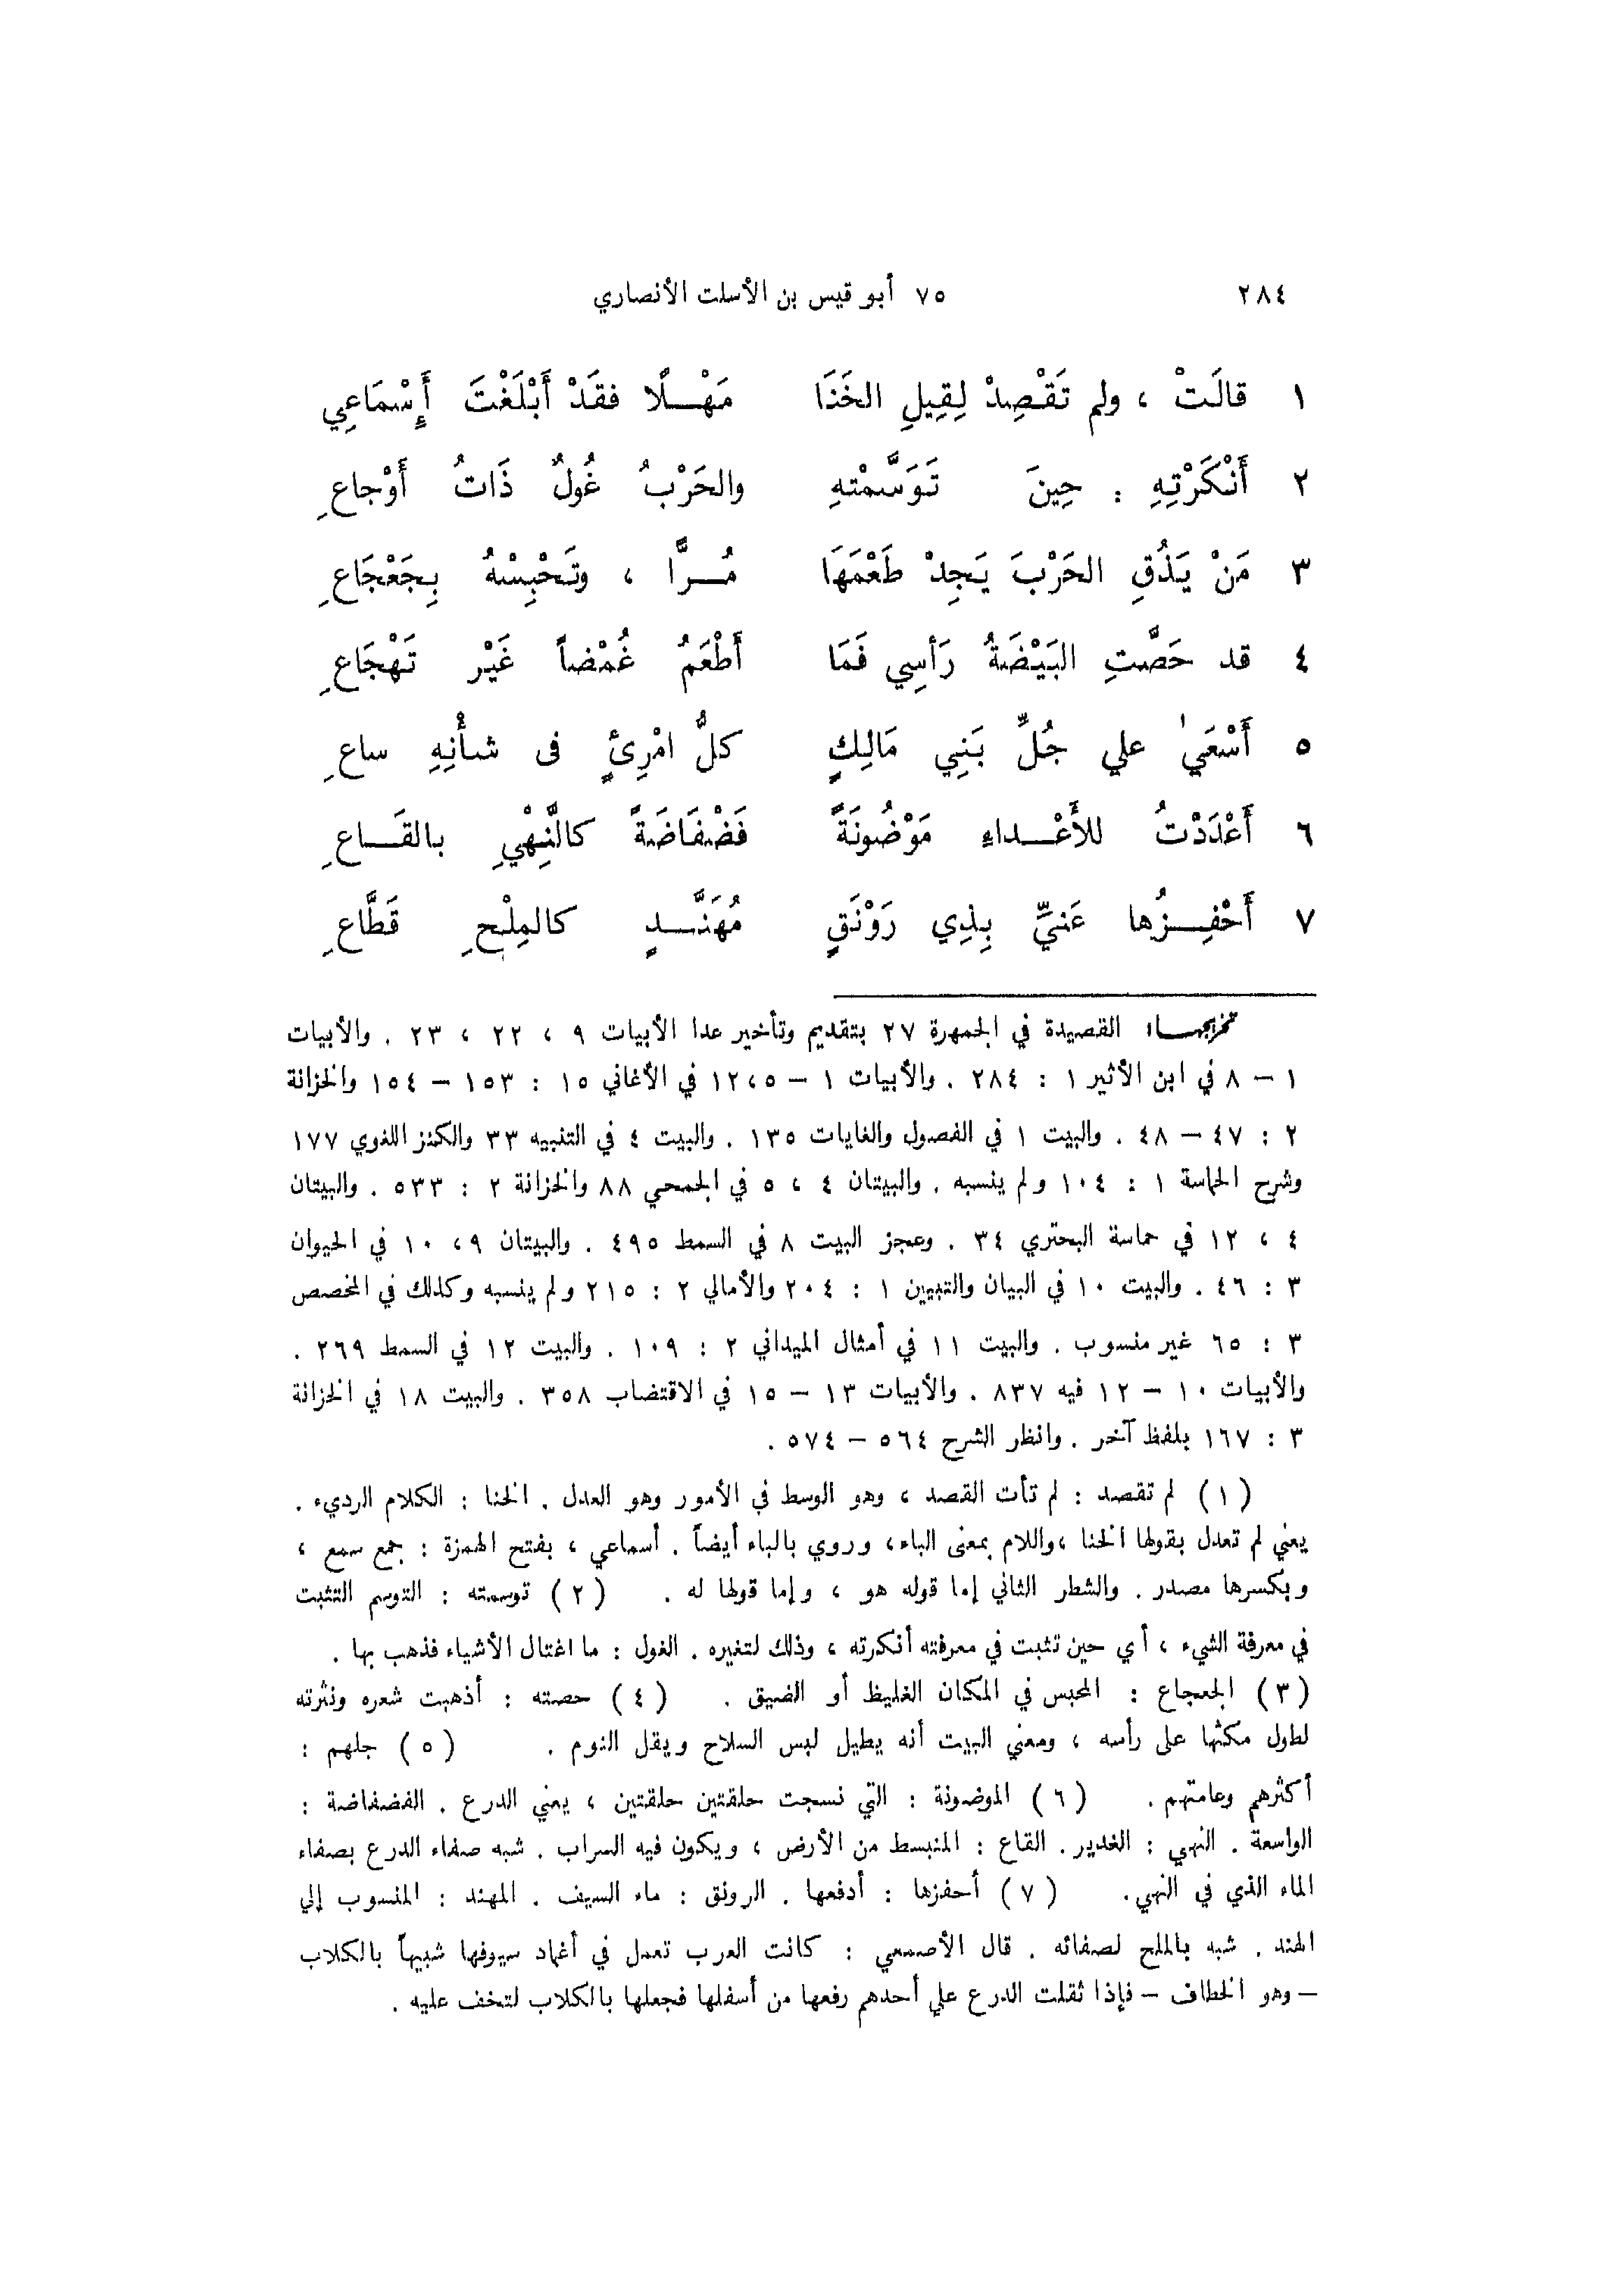 ٢٨٤ ٧٥ أبو قيس بن الأسلت الأنصاري
١ قالَتْ ، ولم تَقْصِدْ لِقِيلِ الخَنَا مَهْلًا فقَدْ أَبْلَغْتَ أَإِسْمَاعِي
٢ أَنْكَرْتِهِ : حِينَ تَوَسَّمْتِهِ والحَرْبُ غُولٌ ذَاتُ أَوْجاعِ
٣ مَنْ يَذُقِ الحَرْبَ يَجِدْ طَعْمَهَا مُرًّا ، وتَحْبِسْهُ بِجَعْجَاعِ
٤ قد حَصَّتِ البَيْضَةُ رَأسِي فَمَا أَطْعَمُ غُمْضاً غَيْر تَهْجَاعِ
٥ أَسْعَىٰ علي جُلِّ بَنِي مَالِكٍ كلُّ امْرِئٍ فى شأْنِهِ ساعِ
٦ أَعْدَدْتُ للأَعْداءِ مَوْضُونَةً فَضْفَاضَةً كالنِّهْيِ بالقَاعِ
٧ أَحْفِزُها عَنِّي بِذِي رَوْنَقٍ مُهَنَّدٍ كالمِلْحِ قَطَّاعِ
تخريجها: القصيدة في الجمهرة ٢٧ بتقديم وتأخير عدا الأبيات ٩ ، ٢٢ ، ٢٣ . والأبيات
١ – ٨ في ابن الأثير ١ : ٢٨٤ . والأبيات ١ – ١٢،٥ في الأغاني ١٥ : ١٥٣ – ١٥٤ والخزانة
٢ : ٤٧ – ٤٨ . والبيت ١ في الفصول والغايات ١٣٥ . والبيت ٤ في التنبيه ٣٣ والكنز اللغوي ١٧٧
وشرح الحماسة ١ : ١٠٤ ولم ينسبه . والبيتان ٤ ، ٥ في الجمحي ٨٨ والخزانة ٢ : ٥٣٣ . والبيتان
٤ ، ١٢ في حماسة البحتري ٣٤ . وعجز البيت ٨ في السمط ٤٩٥ . والبيتان ٩، ١٠ في الحيوان
٣ : ٤٦ . والبيت ١٠ في البيان والتبيين ١ : ٢٠٤ والأمالي ٢ : ٢١٥ ولم ينسبه وكذلك في المخصص
٣ : ٦٥ غير منسوب . والبيت ١١ في أمثال الميداني ٢ : ١٠٩ . والبيت ١٢ في السمط ٢٦٩ .
والأبيات ١٠ – ١٢ فيه ٨٣٧ . والأبيات ١٣ – ١٥ في الاقتضاب ٣٥٨ . والبيت ١٨ في الخزانة
٣ : ١٦٧ بلفظ آخر . وانظر الشرح ٥٦٤ – ٥٧٤ .
( ١ ) لم تقصد : لم تأت القصد ، وهو الوسط في الأمور وهو العدل . الخنا : الكلام الرديء .
يعني لم تعدل بقولها الخنا ،واللام بمعنى الباء، وروي بالباء أيضاً . أسماعي ، بفتح الهمزة : جمع سمع ،
وبكسرها مصدر . والشطر الثاني إما قوله هو ، وإما قولها له . ( ٢ ) توسمته : التوسم التثبت
في معرفة الشيء ، أي حين تثبت في معرفته أنكرته ، وذلك لتغيره . الغول : ما اغتال الأشياء فذهب بها .
( ٣ ) الجعجاع : المحبس في المكان الغليظ أو الضيق . ( ٤ ) حصته : أذهبت شعره ونثرته
لطول مكثها على رأسه ، ومعني البيت أنه يطيل لبس السلاح ويقل النوم . ( ٥ ) جلهم :
أكثرهم وعامتهم . ( ٦ ) الموضونة : التي نسجت حلقتين حلقتين ، يعني الدرع . الفضفاضة :
الواسعة . النهي : الغدير . القاع : المنبسط من الأرض ، ويكون فيه السراب . شبه صفاء الدرع بصفاء
الماء الذي في النهي. ( ٧ ) أحفزها : أدفعها . الرونق : ماء السيف . المهند : المنسوب إلي
الهند . شبه بالملح لصفائه . قال الأصمعي : كانت العرب تعمل في أغماد سيوفها شبيهاً بالكلاب
– وهو الخطاف – فإذا ثقلت الدرع علي أحدهم رفعها من أسفلها فجعلها بالكلاب لتخف عليه .